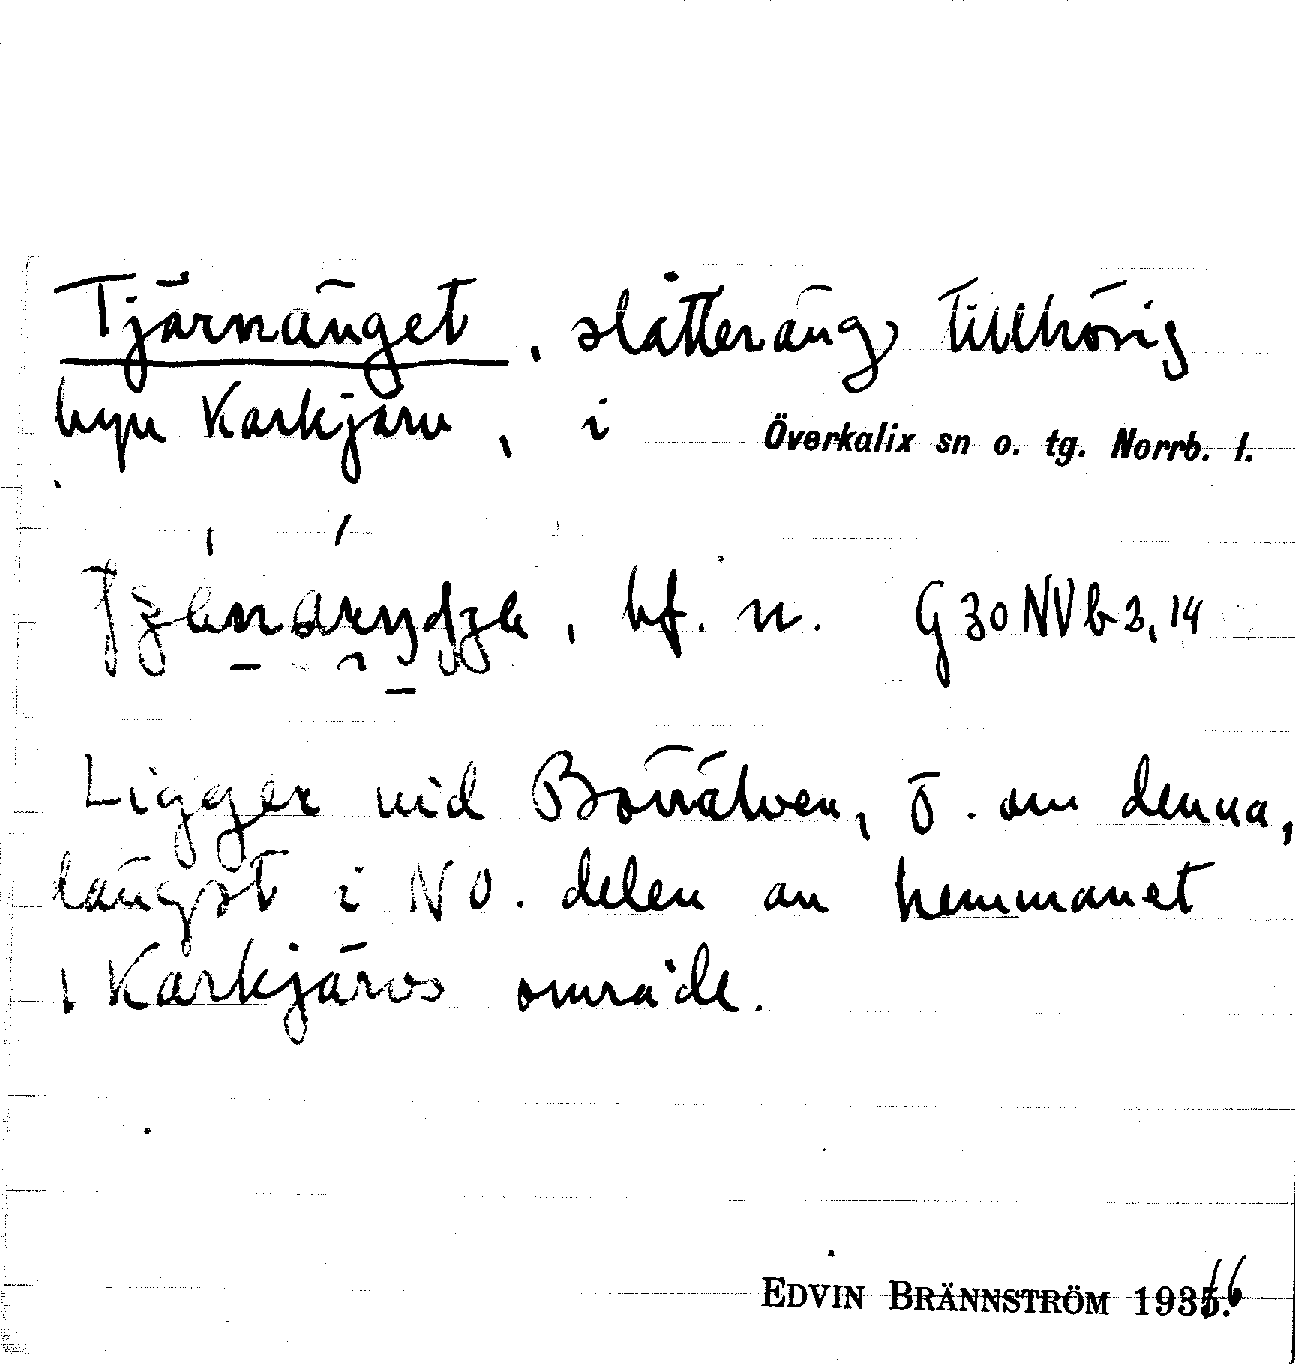 Tjärnänget, slåtteräng tillhörig
byn Karkjärv, i Överkalix sn o. tg. Norrb. l.
, bf. n. G 30 NV b 3, 14
Ligger vid Bönälven, ö. om denna,
längst i NO. delen av hemmanet
i Karkjärvs område.
EDVIN BRÄNNSTRÖM 1936.